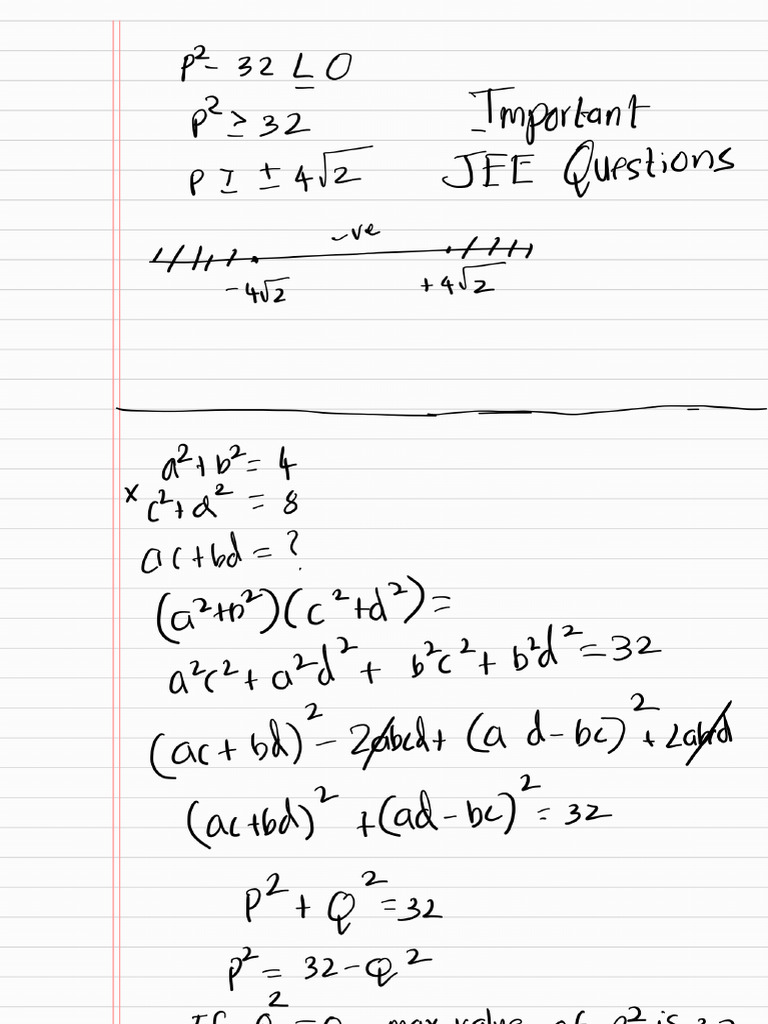 p² - 32 ≤ 0
p² ≥ 32
Important
p ≥ ± 4√2
JEE Questions
-ve
-4√2
+4√2
a² + b² = 4
x c² + d² = 8
ac + bd = ?
(a² + b²)(c² + d²) =
a²c² + a²d² + b²c² + b²d² = 32
(ac + bd)² - 2abcd + (ad - bc)² + 2abcd
(ac + bd)² + (ad - bc)² = 32
p² + Q² = 32
p² = 32 - Q²